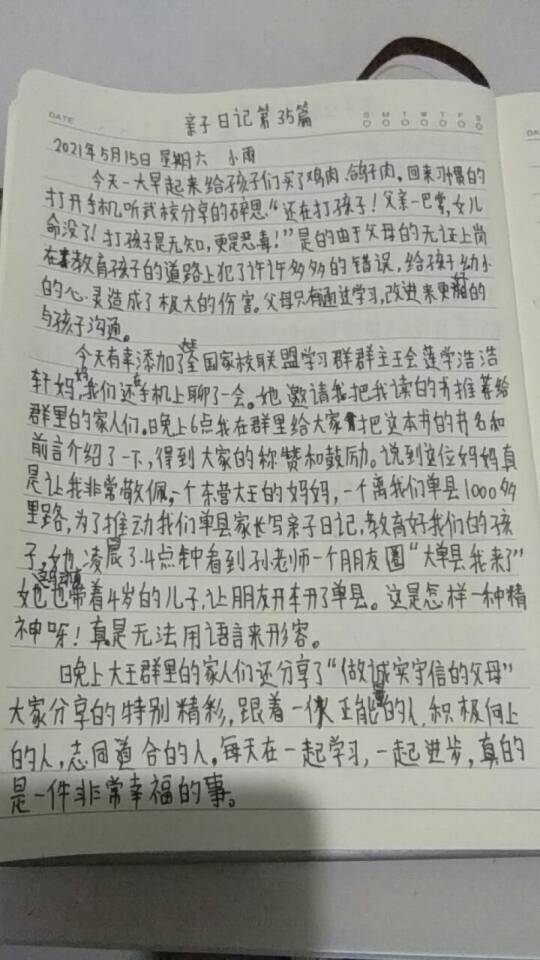 DATE
亲子日记第35篇
S M T W T F S
DA
2021年5月15日 星期六 小雨
今天一大早起来给孩子们买了鸡肉、鸽子肉。回来习惯的
打开手机听武校分享的碎思“还在打孩子!父亲一巴掌,女儿
命没了!打孩子是无知,更是恶毒!”是的由于父母的无证上岗
在教育孩子的道路上犯了许许多多的错误,给孩子幼小
的心灵造成了极大的伤害。父母只有通过学习,改进来更好的
与孩子沟通。
今天有幸添加了全国家校联盟学习群群主王会莲学浩浩
轩妈妈,我们还在手机上聊了一会。她邀请我把我读的书推荐给
群里的家人们。晚上6点我在群里给大家把这本书的书名和
前言介绍了一下,得到大家的称赞和鼓励。说到这位妈妈真
是让我非常敬佩,一个东营大王的妈妈,一个离我们单县1000多
里路,为了推动我们单县家长写亲子日记,教育好我们的孩
子,她凌晨3.4点钟看到孙老师一个朋友圈“大单县我来了”
她也带着4岁的儿子,让朋友开车开了单县。这是怎样一种精
神呀!真是无法用语言来形容。
晚上大王群里的家人们还分享了“做诚实守信的父母”
大家分享的特别精彩,跟着一伙正能量的人,积极向上
的人,志同道合的人。每天在一起学习,一起进步,真的
是一件非常幸福的事。